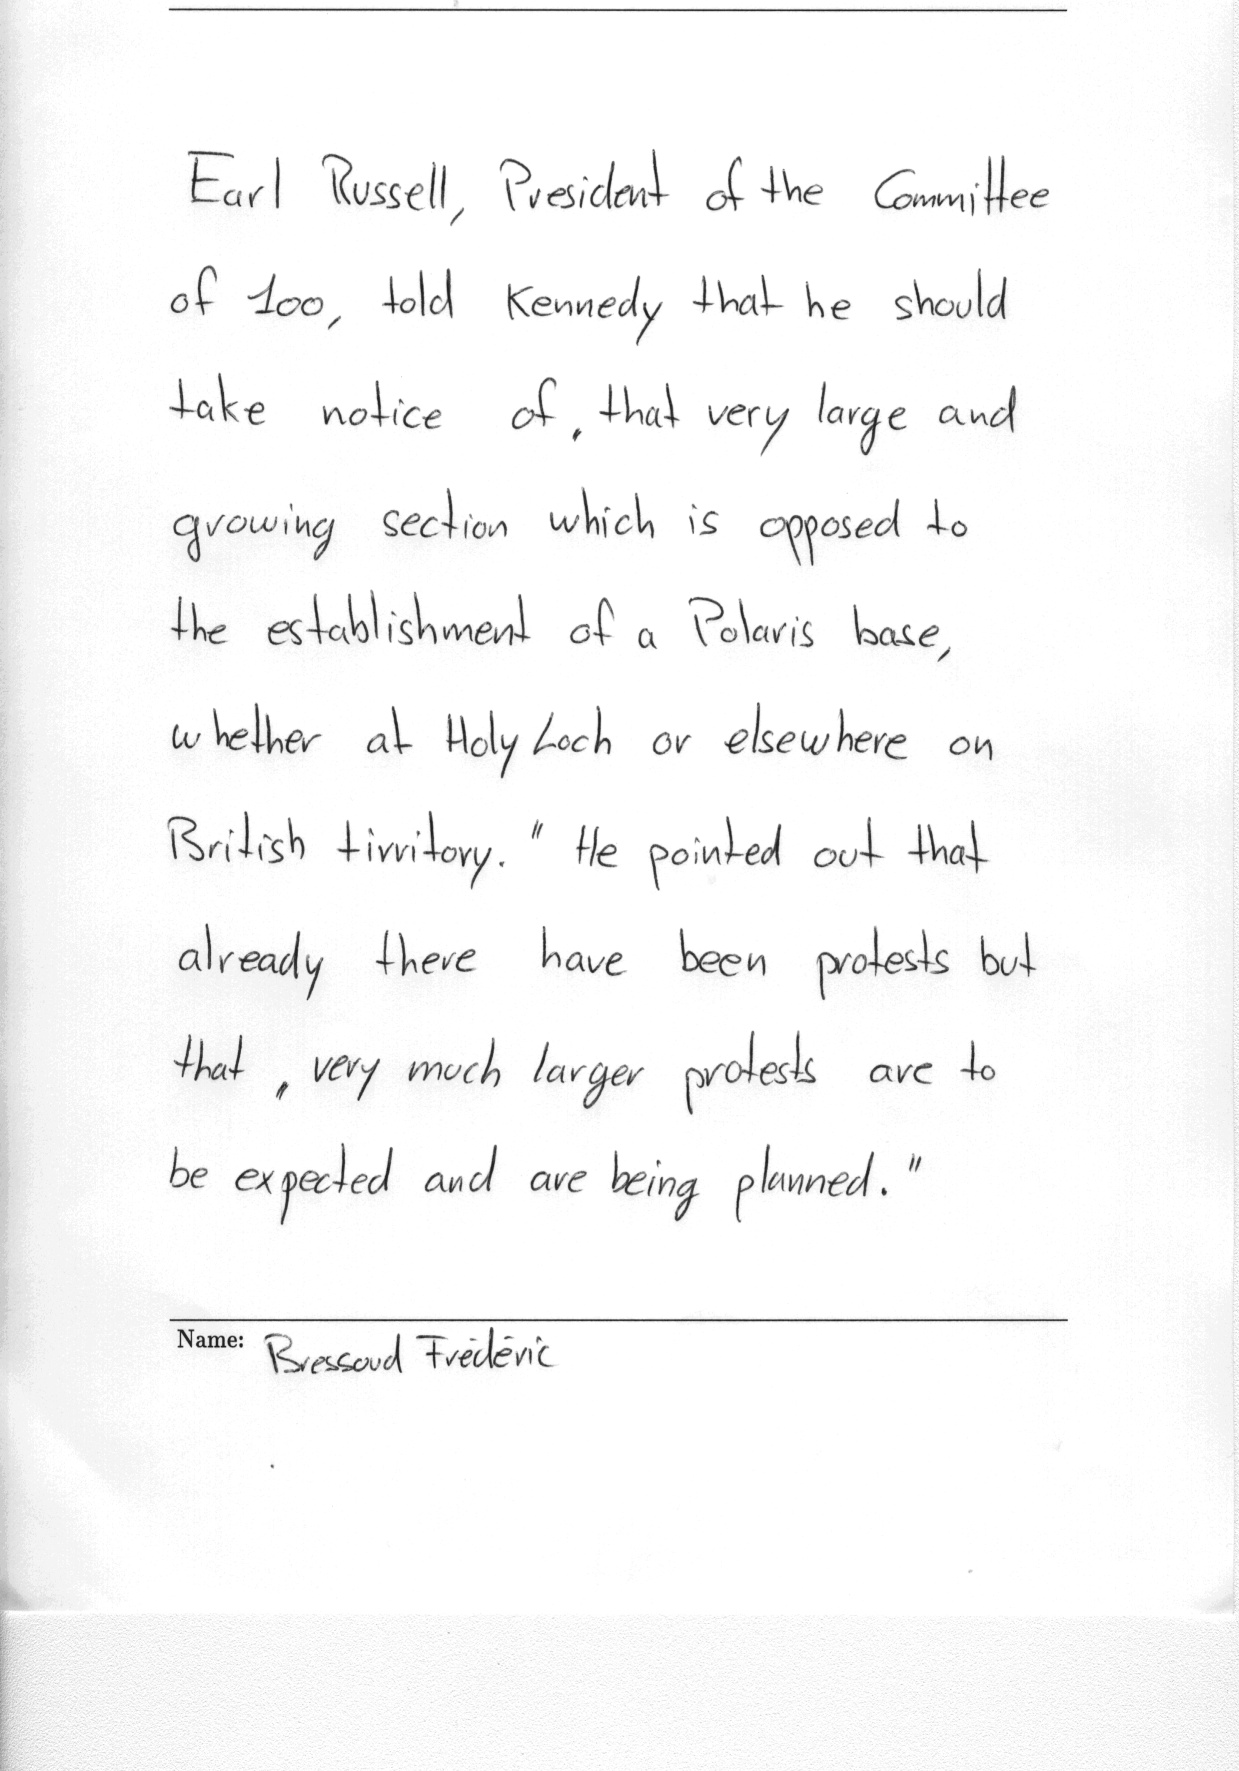 Earl Russell, President of the Committee
of 100, told Kennedy that he should
take notice of „that very large and
growing section which is opposed to
the establishment of a Polaris base,
whether at Holy Loch or elsewhere on
British tirritory." He pointed out that
already there have been protests but
that „very much larger protests are to
be expected and are being planned."
Name: Bressoud Frédéric